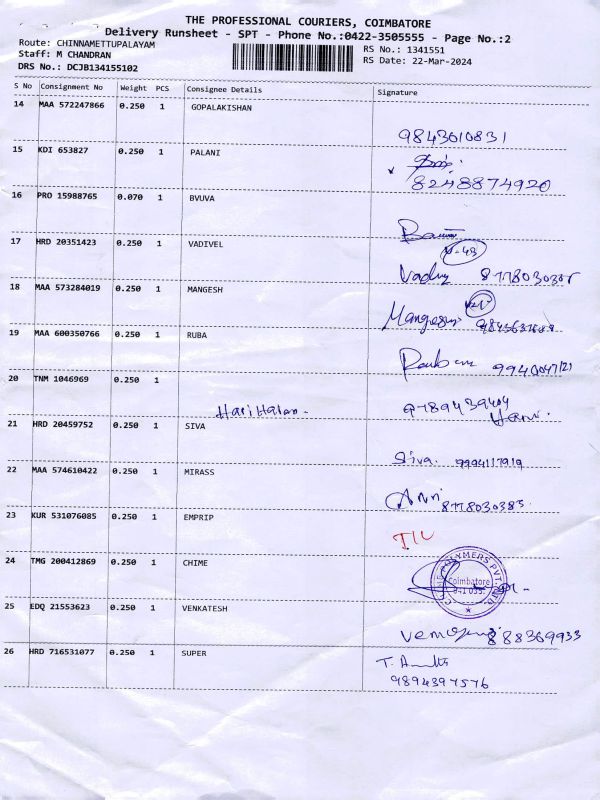 THE PROFESSIONAL COURIERS, COIMBATORE
Delivery Runsheet - SPT - Phone No.:0422-3505555 - Page No.:2
Route: CHINNAMETTUPALAYAM
RS No.: 1341551
Staff: M CHANDRAN
RS Date: 22-Mar-2024
DRS No.: DCJB134155102
S No Consignment No Weight PCS Consignee Details Signature
14 MAA 572247866 0.250 1 GOPALAKISHAN
9843010831
15 KDI 653827 0.250 1 PALANI
8248874920
16 PRO 15988765 0.070 1 BVUVA
17 HRD 20351423 0.250 1 VADIVEL
18 MAA 573284019 0.250 1 MANGESH
19 MAA 600350766 0.250 1 RUBA
20 TNM 1046969 0.250 1
Hari Haran.
9789439404
Hari.
21 HRD 20459752 0.250 1 SIVA
Siva. 9994117919
22 MAA 574610422 0.250 1 MIRASS
8778030383.
23 KUR 531076085 0.250 1 EMPRIP
24 TMG 200412869 0.250 1 CHIME
POLYMERS PVT. LTD.
Coimbatore
25 EDQ 21553623 0.250 1 VENKATESH
26 HRD 716531077 0.250 1 SUPER
9894397576